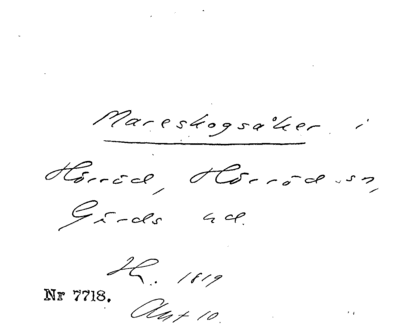 Mareskogsåker i
Hörröd, Hörröd sn,
Gärds hd.
Hg. 1819
Nr 7718.
Akt 10.